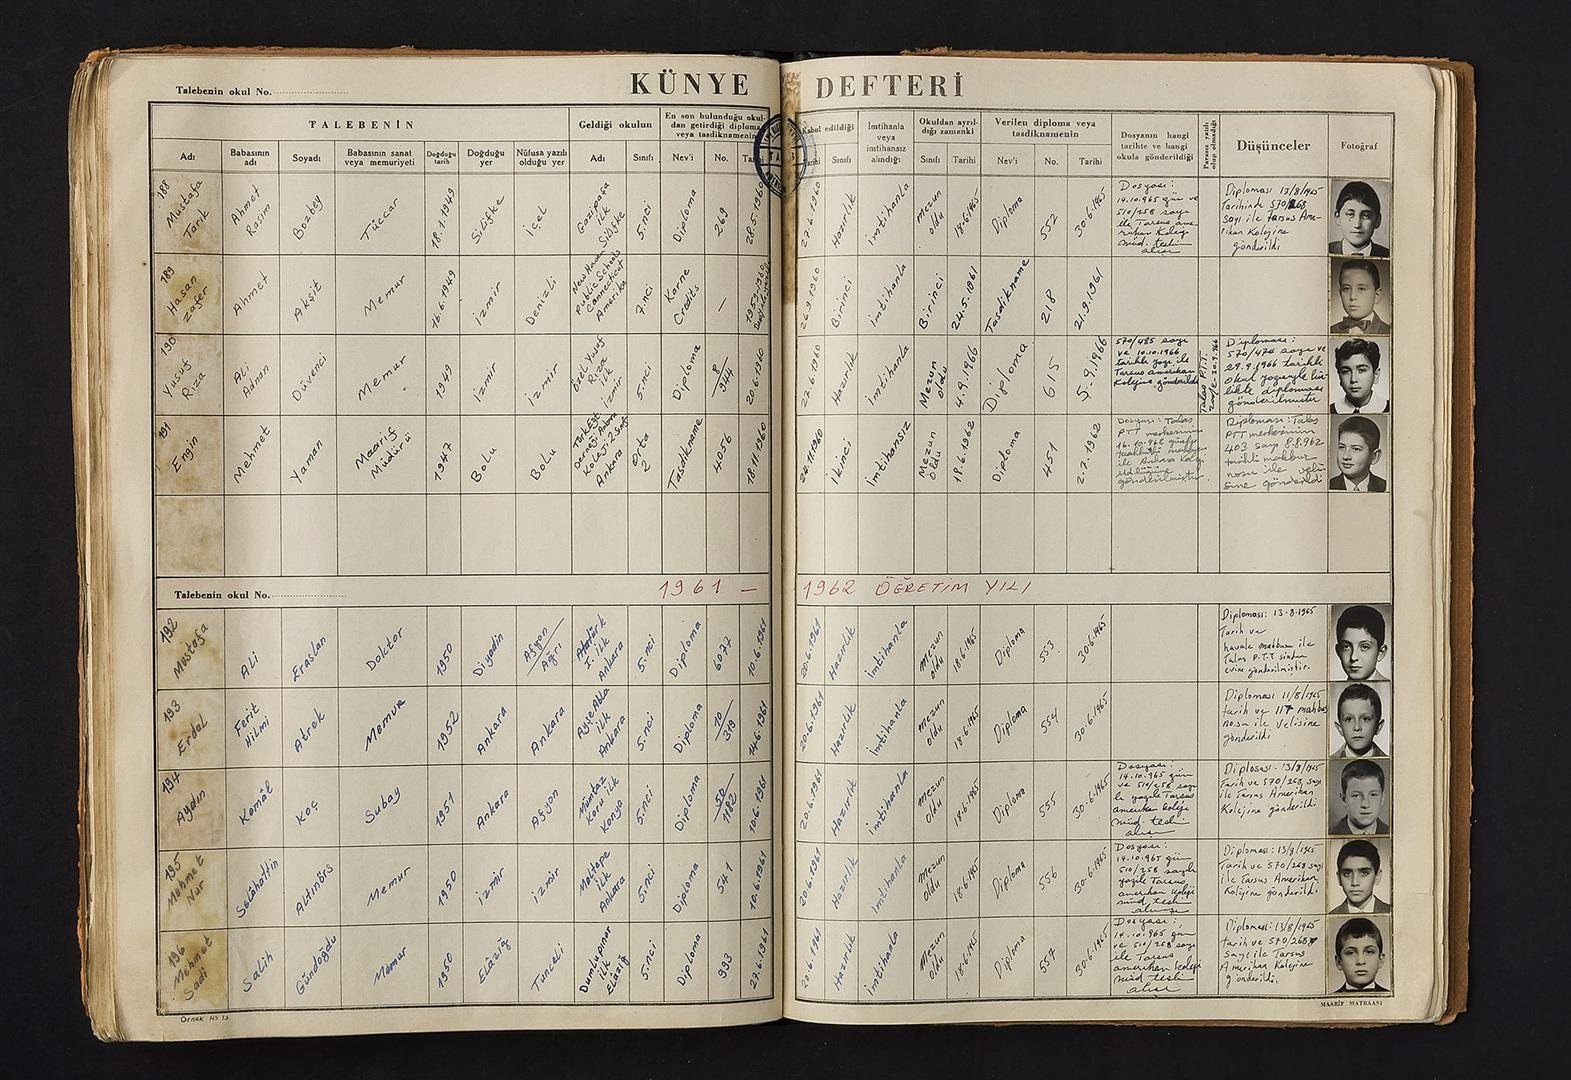 Talebenin okul No.
KÜNYE DEFTERİ
TALEBENİN
Geldiği okulun
En son bulunduğu okul-
dan getirdiği diploma
veya tasdiknamenin
Kabul edildiği
İmtihanla
veya
imtihansız
alındığı
Okuldan ayrıl-
dığı zamanki
Verilen diploma veya
tasdiknamenin
Dosyanın hangi
tarihte ve hangi
okula gönderildiği
Düşünceler
Fotoğraf
Adı
Babasının
adı
Soyadı
Babasının sanat
veya memuriyeti
Doğduğu
tarih
Doğduğu
yer
Nüfusa yazılı
olduğu yer
Adı
Sınıfı
Nev'i
No.
Tarihi
Tarihi
Sınıfı
Sınıfı
Tarihi
Nev'i
No.
Tarihi
188
Mustafa
Tarık
Ahmet
Rasim
Bozbey
Tüccar
18.1.1949
Silifke
İçel
Gazipaşa
ilk
Silifke
5.inci
Diploma
269
28.5.1960
27.6.1960
Hazırlık
İmtihanla
Mezun
oldu
18.6.1965
Diploma
552
30.6.1965
Dosyası:
14.10.965 gün ve
510/258 sayı
ile Tarsus ame-
rikan Koleji
müd. teslim
alışı
Diploması 13/8/1965
Tarihinde 570/268
sayı ile Tarsus Ame-
rikan Kolejine
gönderildi
189
Hasan
Zafer
Ahmet
Akşit
Memur
16.6.1949
İzmir
Denizli
New Haven
Public Schools
Connecticut
Amerika
7.nci
Karne
Credits
—
26.9.1960
Birinci
İmtihanla
Birinci
24.5.1961
Tasdikname
218
21.9.1961
190
Yusuf
Rıza
Ali
Adnan
Düvenci
Memur
1949
İzmir
İzmir
Özel Yusuf
Rıza
ilk
İzmir
5.inci
Diploma
8
944
20.6.1960
27.6.1960
Hazırlık
İmtihanla
Mezun
oldu
4.9.1966
Diploma
615
5.9.1966
570/485 sayı
ve 10.10.1966
tarihli yazı ile
Tarsus amerikan
Kolejine gönderildi
Talas P.T.T.
Diploması:
570/474 sayı ve
29.9.1966 tarihli
okul yazısıyle bir-
likte diploması
gönderilmiştir
191
Engin
Mehmet
Yaman
Maarif
Müdürü
1947
Bolu
Bolu
Türk Eğt
Derneği Ankara
Koleji 2 Sınıf
Ankara
orta
2
Tasdikname
4056
18.11.1960
24.11.1960
İkinci
İmtihansız
Mezun
oldu
18.6.1962
Diploma
451
2.7.1962
Dosyası: Talas
PTT merkezinin
ile Ankara
gönderilmiştir
Diploması: Talas
PTT merkezinin
403 sayı 8.8.962
tarihli makbuz
gönderildi
Talebenin okul No.
1961 — 1962 ÖĞRETİM YILI
192
Mustafa
Ali
Eraslan
Doktor
1950
Diyadin
Afyon
Ağrı
Atatürk
ilk
Ankara
5.inci
Diploma
6077
10.6.1961
20.6.1961
Hazırlık
İmtihanla
Mezun
oldu
18.6.1965
Diploma
553
30.6.1965
Diploması: 13-8-1965
Tarih ve
havale makbuzu ile
Talas P.T.T sinden
evine gönderilmiştir.
193
Erdal
Ferit
Hilmi
Atrek
Memur
1952
Ankara
Ankara
Ayşe Abla
ilk
Ankara
5.inci
Diploma
10
319
14.6.1961
20.6.1961
Hazırlık
İmtihanla
Mezun
oldu
18.6.1965
Diploma
554
30.6.1965
Diploması 11/8/1965
tarih ve 117 makbuz
no.su ile Velisine
gönderildi
194
Aydın
Kemâl
Koç
Subay
1951
Ankara
Afyon
Mümtaz
Koru ilk
Konya
5.inci
Diploma
50
1182
10.6.1961
20.6.1961
Hazırlık
İmtihanla
Mezun
oldu
18.6.1965
Diploma
555
30.6.1965
Dosyası:
14.10.965 gün
ve 510/258 sayı
lı yazıyla Tarsus
amerikan koleji
müd. teslim
alışı
Diploması: 13/8/1965
Tarih ve 570/268 sayı
ile Tarsus Amerikan
Kolejine gönderildi
195
Mehmet
Nur
Selâhattin
Altınörs
Memur
1950
İzmir
İzmir
Maltepe
ilk
Ankara
5.inci
Diploma
541
10.6.1961
20.6.1961
Hazırlık
İmtihanla
Mezun
oldu
18.6.1965
Diploma
556
30.6.1965
Dosyası:
14.10.965 gün
510/258 sayılı
yazıyla Tarsus
amerikan koleji
müd teslim
alışı
Diploması: 13/8/1965
Tarih ve 570/268 sayı
ile Tarsus Amerikan
Kolejine gönderildi.
196
Mehmet
Sadi
Salih
Gündoğdu
Memur
1950
Elâzığ
Tunceli
Dumlupınar
ilk
Elâzığ
5.inci
Diploma
993
27.6.1961
Hazırlık
İmtihanla
Mezun
oldu
18.6.1965
Diploma
557
30.6.1965
Dosyası:
14.10.965 gün
ve 510/258 sayı
ile Tarsus
amerikan koleji
müd teslim
alışı
Diploması: 13/8/1965
tarih ve 570/268
sayı ile Tarsus
Amerikan Kolejine
gönderildi.
Örnek No 13
MAARİF MATBAASI